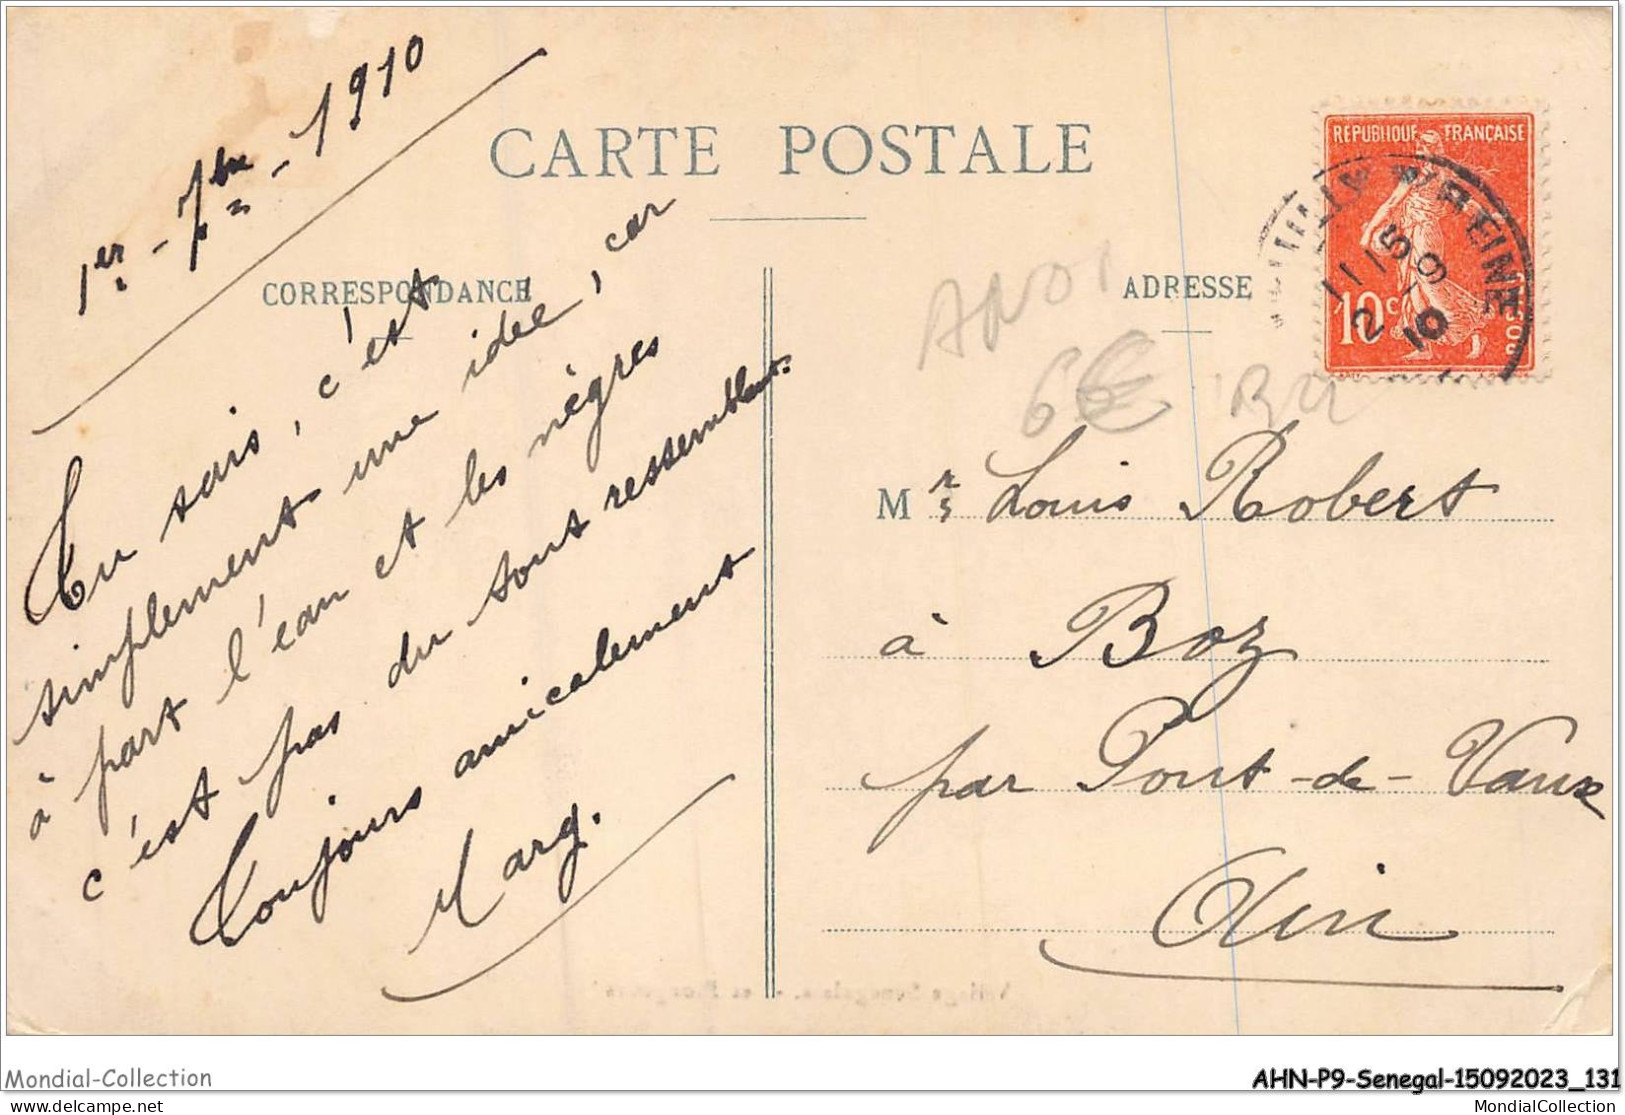 1er - 7bre - 1910
CARTE POSTALE
CORRESPONDANCE
ADRESSE
REPUBLIQUE FRANÇAISE
10c
11 15
2 -9
10
S/REINE
6€
Tu sais, c'est
simplement une idée, car
à part l'eau et les nègres
c'est pas du tout ressemblant.
Toujours amicalement
Marg.
Mrs Louis Robert
à Boz
par Pont-de-Vaux
Ain
Mondial-Collection
AHN-P9-Senegal-15092023_131
delcampe.net
MondialCollection